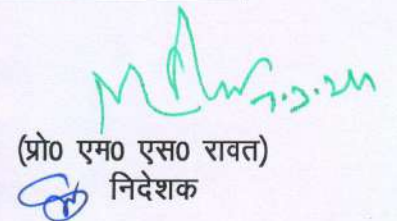 7.3.24
(प्रो0 एम0 एस0 रावत)
निदेशक